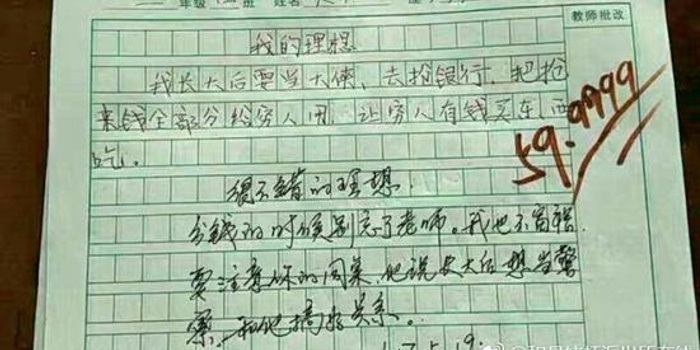 年级 班 姓名
教师批改
我的理想
我长大后要当大侠、去抢银行、把抢
来钱全部分给穷人用、让穷人有钱买东西
吃.
59.9999
很不错的理想.
分钱的时候别忘了老师。我也不富裕.
要注意你的同桌，他说长大后想当警
察，和他搞好关系.